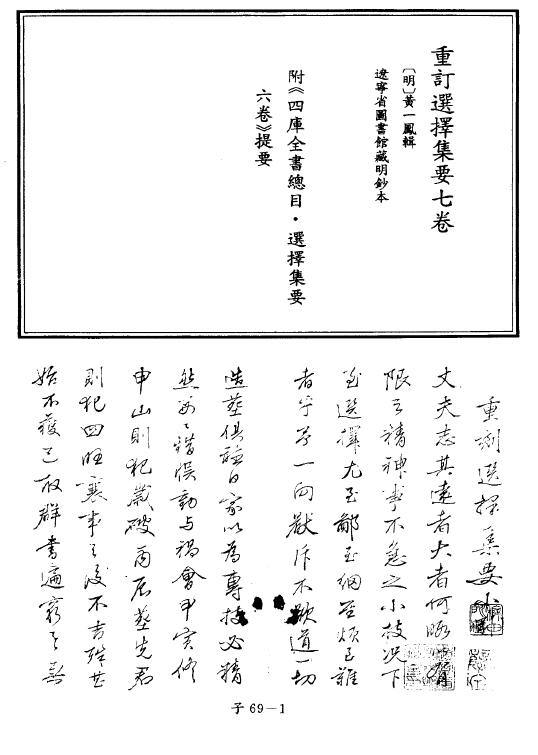 重訂選擇集要七卷
〔明〕黃一鳳輯
遼寧省圖書館藏明鈔本
附《四庫全書總目·選擇集要
六卷》提要
重刻選擇集要小
丈夫志其遠者大者何暇
限之精神事不急之小技況下
至選擇尤至鄙至細至煩已難
者乎予一向厭斥不歡道一切
造塟俱諉日家以為專技必精
然必錯悞動与禍會甲寅修
申山則犯歲破丙辰塟先君
則犯四旺襄事之後不吉殊甚
始不獲已取群書遍窮之
子69－1